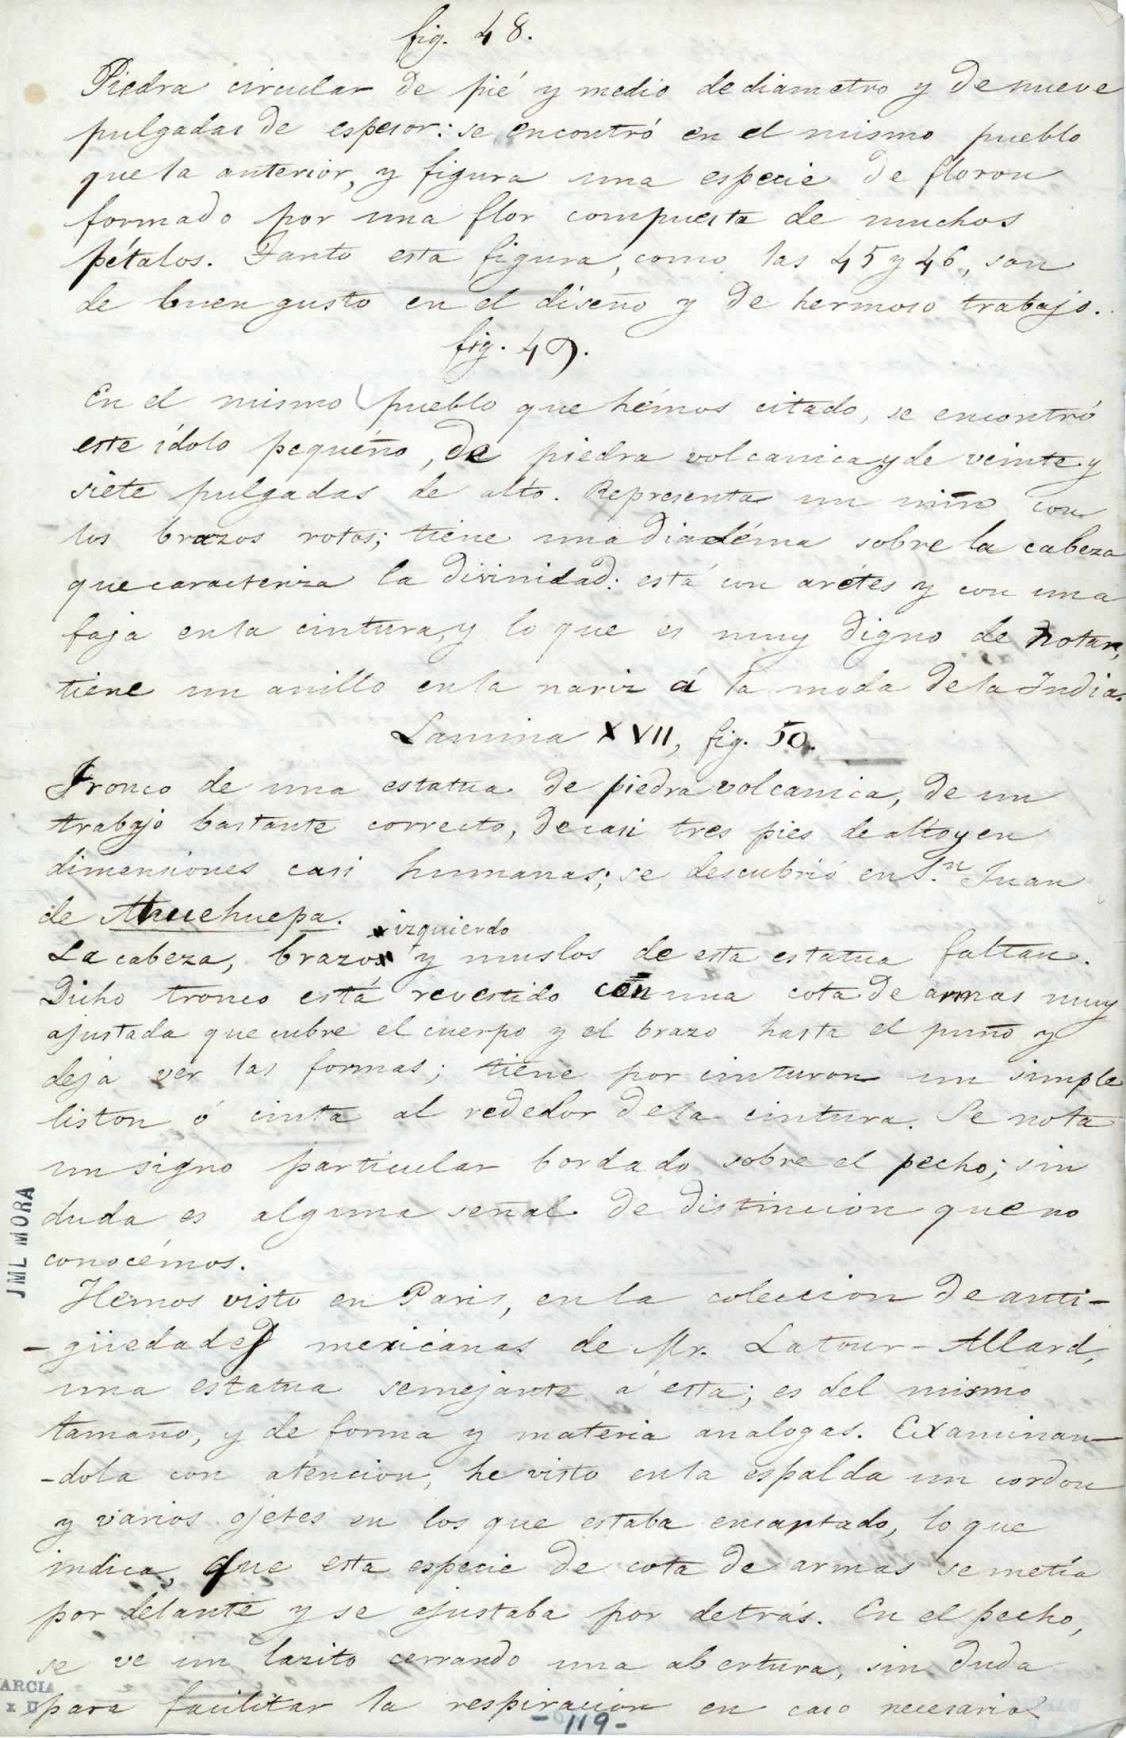 fig. 48.
Piedra circular de pié y medio de diametro y de nueve
pulgadas de espesor: se encontró en el mismo pueblo
que la anterior, y figura una especie de floron
formado por una flor compuesta de muchos
pétalos. Tanto esta figura, como las 45 y 46, son
de buen gusto en el diseño y de hermoso trabajo.
fig. 49.
En el mismo pueblo que hémos citado, se encontró
este ídolo pequeño, de piedra volcanica y de veinte y
siete pulgadas de alto. Representa un niño con
los brazos rotos; tiene una diadéma sobre la cabeza
que caracteriza la divinidad: está con arétes y con una
faja en la cintura, y lo que es muy digno de notar,
tiene un anillo en la nariz á la moda de la India.
Lamina XVII, fig. 50.
Tronco de una estatua de piedra volcanica, de un
trabajo bastante correcto, de casi tres pies de alto y en
dimensiones casi humanas; se descubrió en S.n Juan
de Ahuehuepa.
x izquierdo
La cabeza, brazo x y muslos de esta estatua faltan.
Dicho tronco está revestido con una cota de armas muy
ajustada que cubre el cuerpo y el brazo hasta el puño y
deja ver las formas; tiene por cinturon un simple
liston ó cinta al rededor de la cintura. Se nota
un signo particular bordado sobre el pecho; sin
duda es alguna señal de distincion que no
conocémos.
Hemos visto en Paris, en la coleccion de anti-
-güedades mexicanas de Mr. Latour-Allard,
una estatua semejante á esta; es del mismo
tamaño, y de forma y materia analogas. Examinan-
-dola con atencion, he visto en la espalda un cordon
y varios ojetes en los que estaba ensartado, lo que
indica, que esta especie de cota de armas se metía
por delante y se ajustaba por detrás. En el pecho,
se ve un lazito cerrando una abertura, sin duda
para facilitar la respiracion en caso necesario
-119-
JML MORA
ARCIA
x U